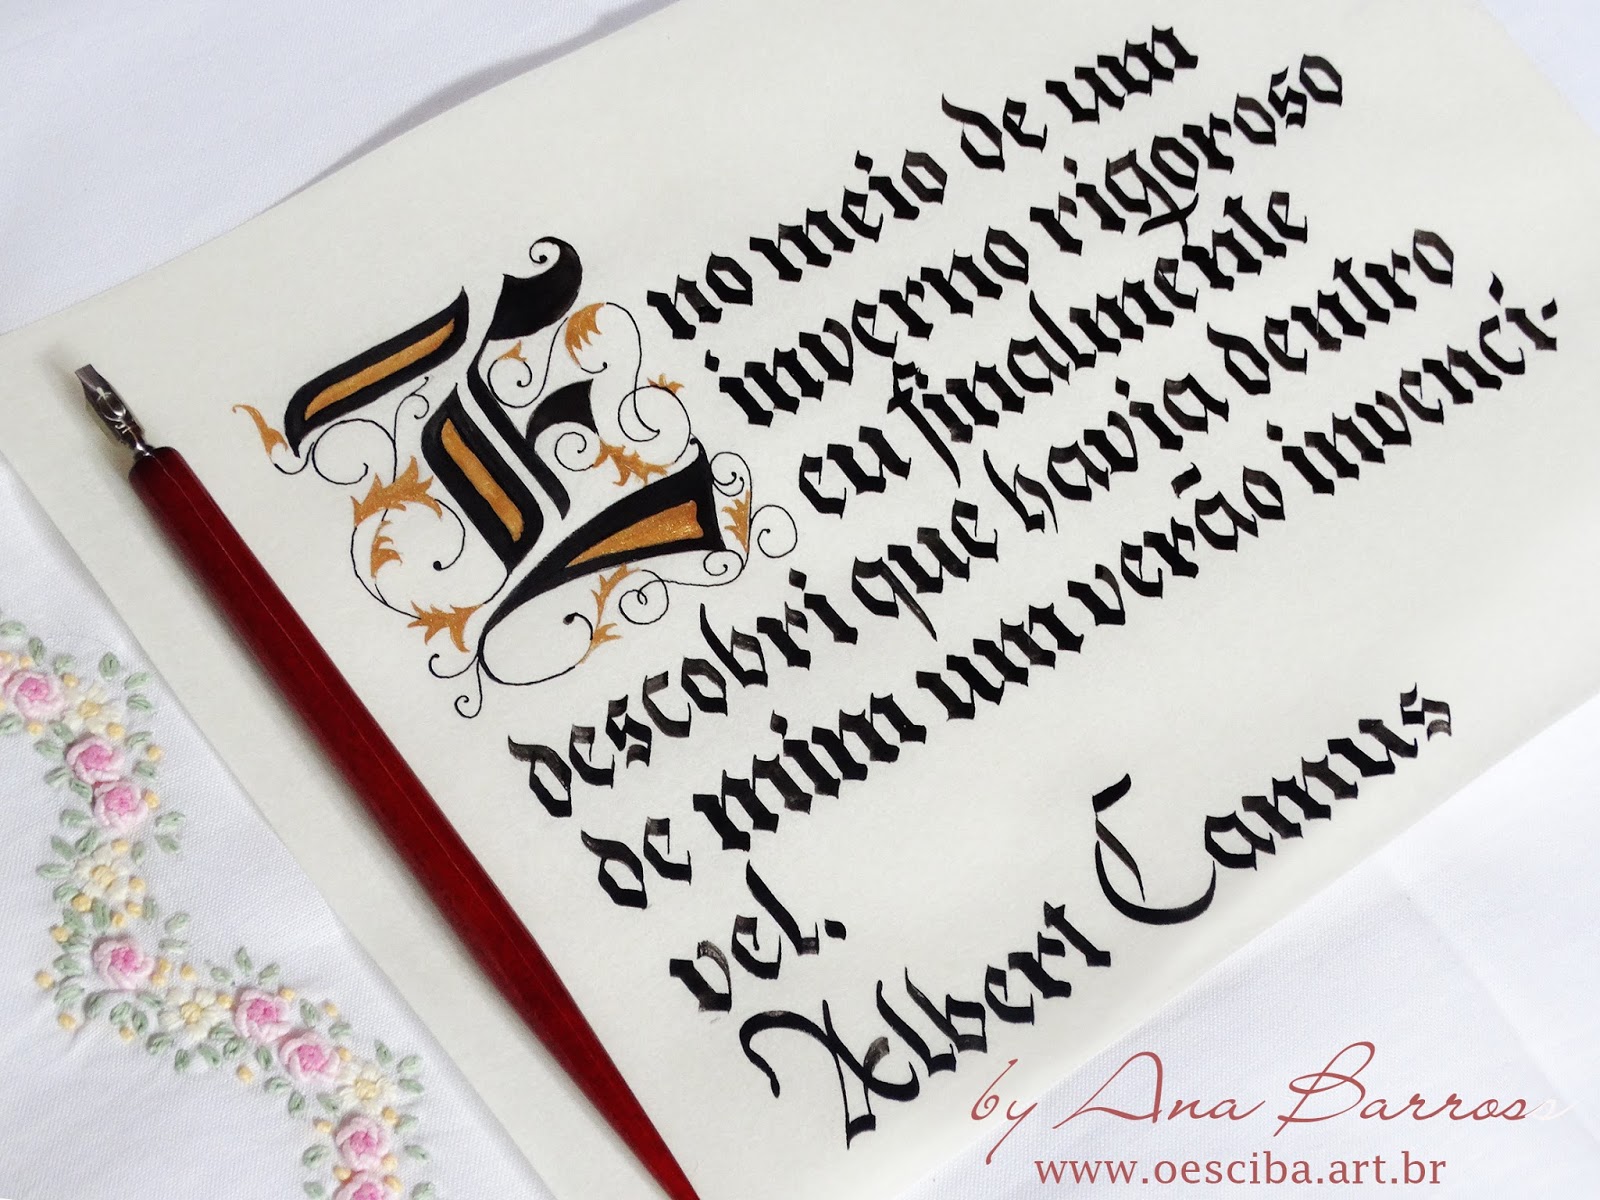 E no meio de um
inverno rigoroso
eu finalmente
descobri que havia dentro
de mim um verão invencí-
vel.
Albert Camus
by Ana Barros
www.oesciba.art.br